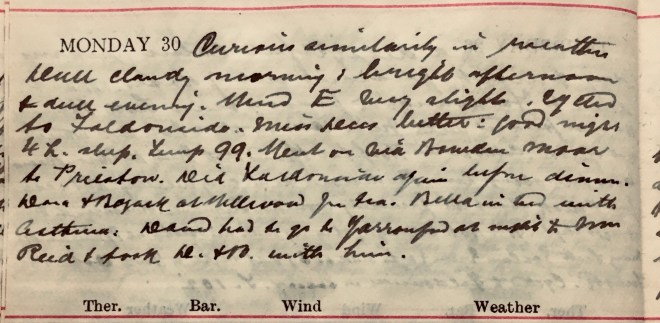 MONDAY 30 Curious similarity in weather
Dull cloudy morning; bright afternoon
& dull evening. Wind E very slight. Cycled
to Faldonside. Miss Dees better: good night
4 h. sleep. Temp 99. Went on via Bowden Moor
to Prieston. Did Faldonside again before dinner.
Dora & at Wellwood for tea. Bella in bed with
Asthma: David had to go to Yarrowford at night to Mrs
Reid & took D. & B. with him.
Ther. Bar. Wind Weather